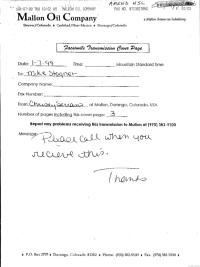 AMEND NSL
JAN-07-99 THU 10:02 AM MALLON OIL COMPANY FAX NO.
Mallon Oil Company
a Mallon Resources Subsidiary
Denver/Colorado • Carlsbad/New Mexico • Durango/Colorado
Facsimile Transmission Cover Page
Date: 1-7-99 Time: Mountain Standard time
To: Mike Stogner
Company name:
Fax Number:
From: Christy Serrano of Mallon, Durango, Colorado, USA
Number of pages including this cover page: 3
Report any problems receiving this transmission to Mallon at (970) 382-9100
Message:
Please call when you
recieve this.
Thanks
• P.O. Box 2797 • Durango, Colorado 81302 • Phone: (970) 382-9100 •